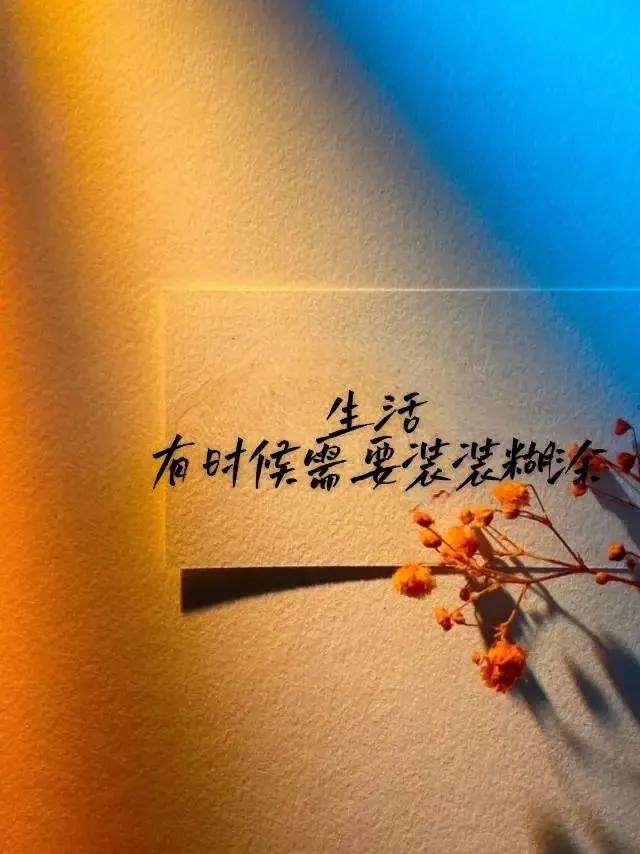 生活
有时候需要装装糊涂